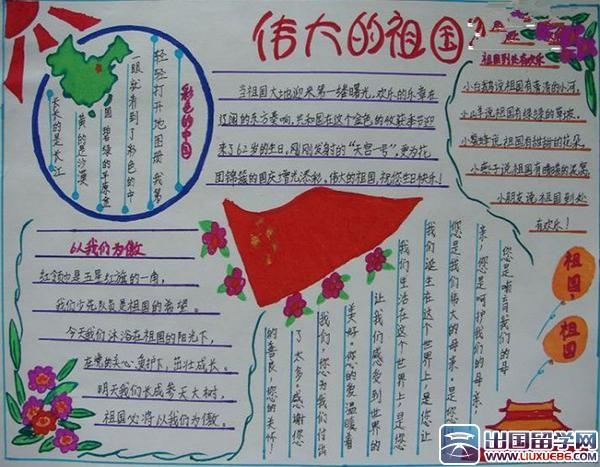 伟大的祖国
彩色的中国
轻轻打开地图册,我第
一眼就看到了彩色的中
国碧绿的是平原金
黄的是沙漠
长长的是长江
当祖国大地迎来第一缕曙光,欢乐的乐章在
辽阔的东方奏响,共和国在这个金色的收获季节迎
来了62岁的生日,刚刚发射的“天宫一号”,更为花
团锦簇的国庆增光添彩。伟大的祖国,祝您生日快乐!
祖国到处有欢乐
小白鹅说祖国有清清的小河,
小山羊说祖国有绿绿的草坡,
小蜜蜂说祖国有甜甜的花朵,
小燕子说祖国有暖暖的窝窝,
小朋友说祖国到处
有欢乐!
以我们为傲
红领巾是五星红旗的一角,
我们少先队员是祖国的希望。
今天我们沐浴在祖国的阳光下,
在党的关心、爱护下,茁壮成长。
明天我们长成参天大树,
祖国必将以我们为傲。
祖国,
祖国
您是哺育我们的母
亲,您是呵护我们的母亲,
您是我们伟大的母亲,是您让
我们诞生在这个世界上,是您让
我们生活在这个世界上,是您
让我们感受到世界的
美好。您的爱温暖着
我们,您为我们付出
了太多。感谢您
的善良,您的关怀!
出国留学网
WWW.LIUXUE86.COM